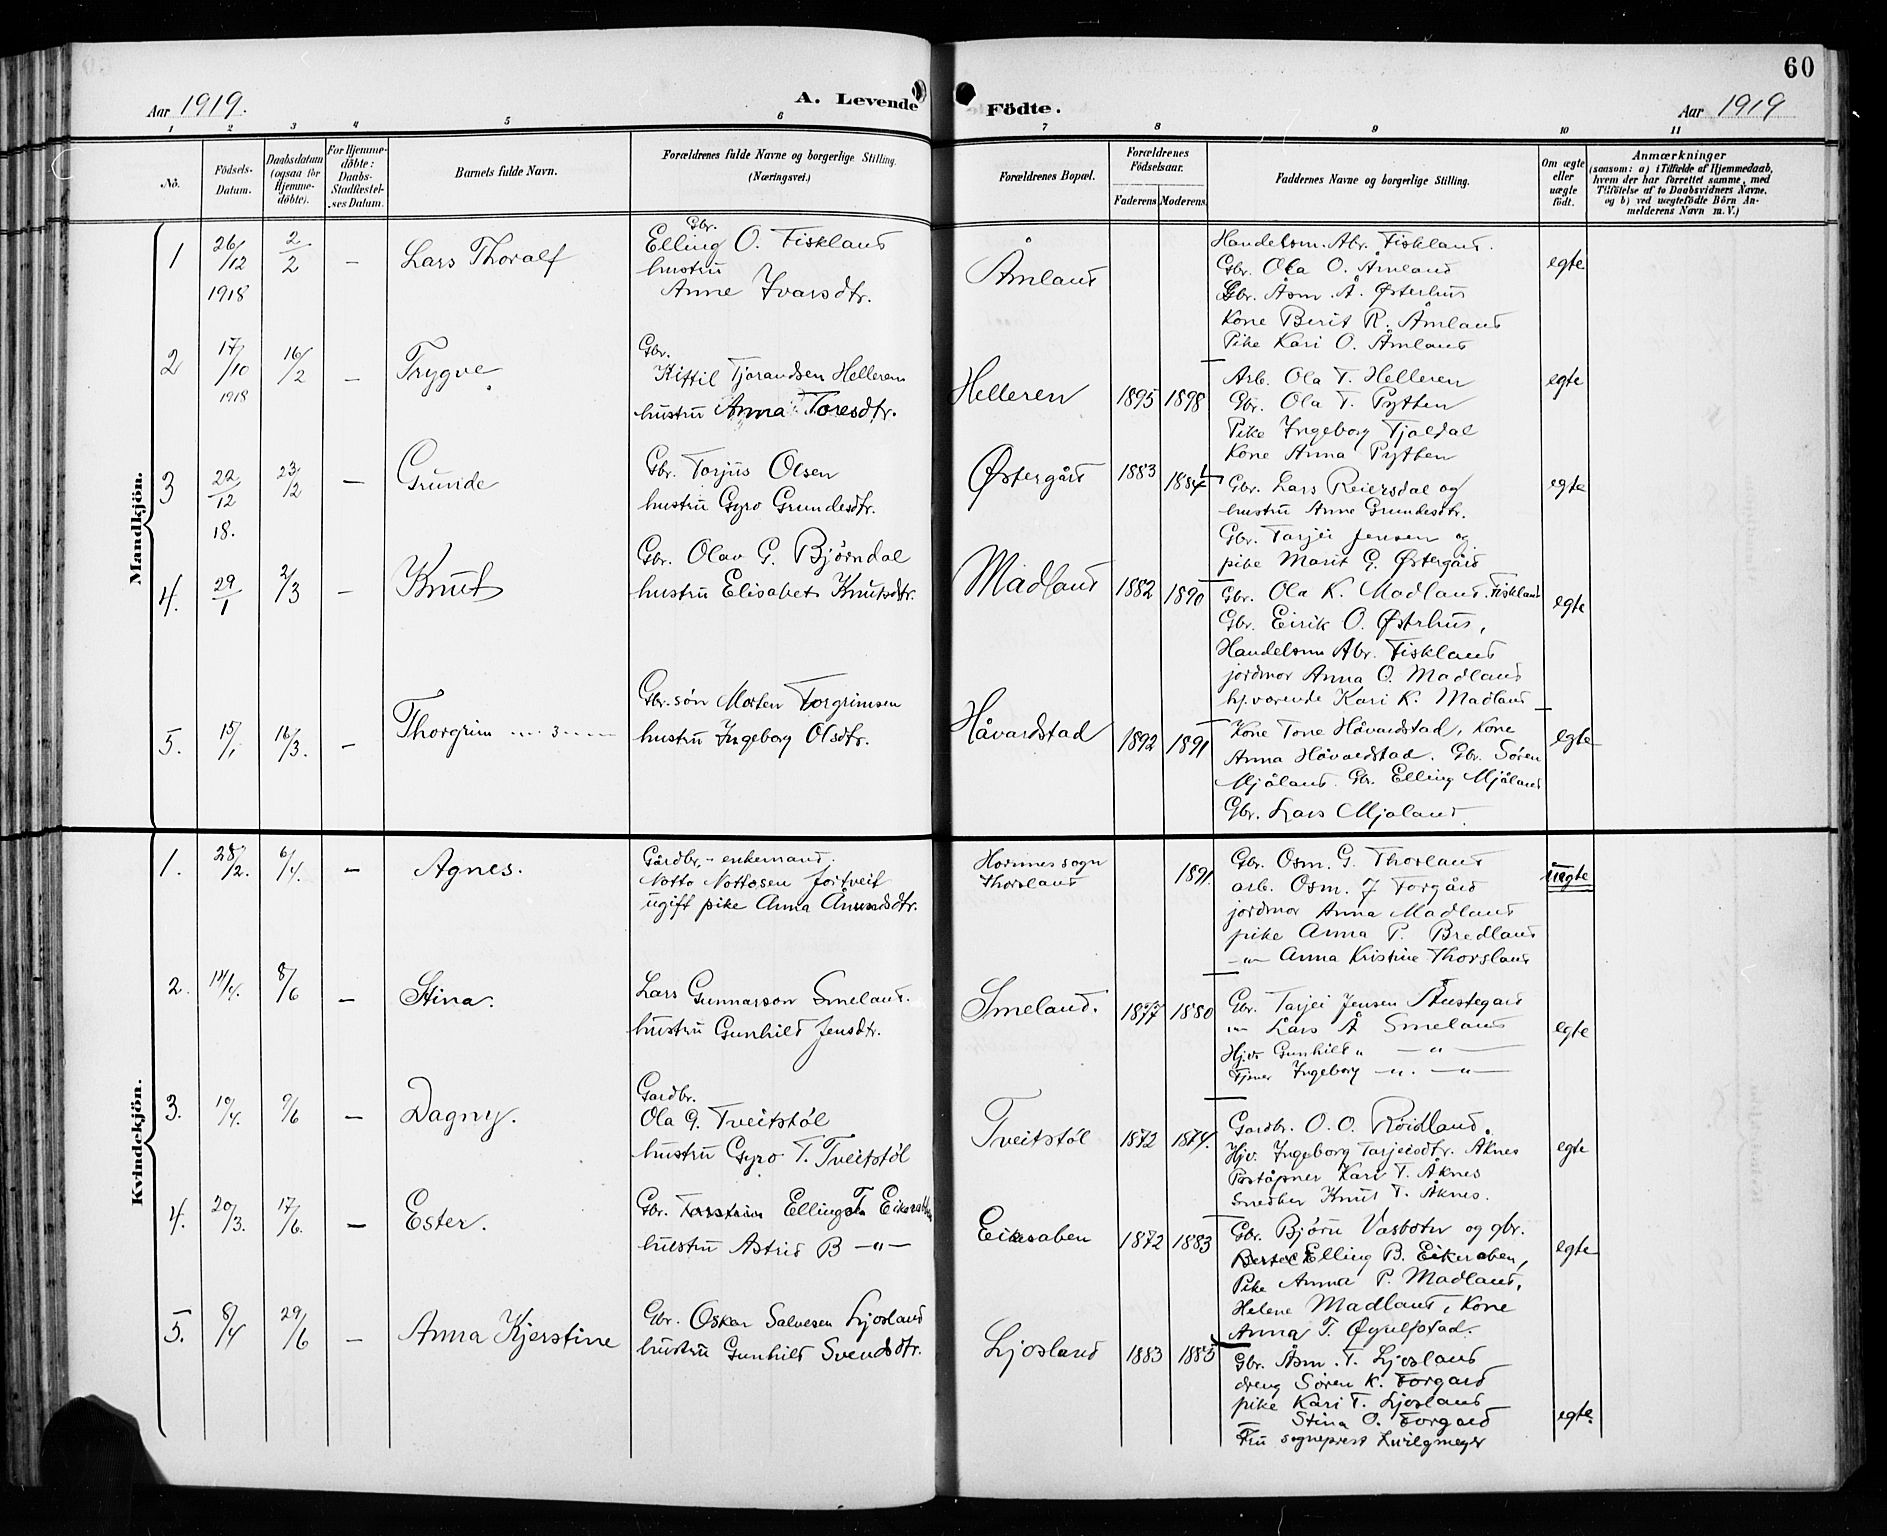 60
Aar 1919.
A. Levende Födte.
Aar 1919
1 2 3 4 5 6 7 8 9 10 11
No.
Födsels-
Datum.
Daabsdatum
(ogsaa for
Hjemme-
döbte).
For Hjemme-
döbte:
Daabs-
Stadfæstel-
ses Datum.
Barnets fulde Navn.
Forældrenes fulde Navne og borgerlige Stilling.
(Næringsvei.)
Forældrenes Bopæl.
Forældrenes
Födselsaar.
Faderens. Moderens.
Faddernes Navne og borgerlige Stilling.
Om ægte
eller
uægte
födt.
Anmærkninger
(saasom: a) i Tilfælde af Hjemmedaab,
hvem der har forrettet samme, med
Tilföielse af to Daabsvidners Navne,
og b) ved uægtefödte Börn An-
melderens Navn m. V.)
Mandkjön.
1 26/12 1918 2/2 — Lars Thoralf
Gbr.
Elling O. Fiskland
hustru
Anne Ivarsdtr.
Åmland
Handelsm. Abr. Fiskland.
Gbr. Ola O. Åmland
Gbr. Åsm. Å. Østerhus
Kone Berit R. Åmland
Pike Kari O. Åmland
egte
2 17/10 1918 16/2 — Trygve
Gbr.
Kittil Tjorandsen Helleren
hustru Anna Toresdtr.
Helleren 1895 1898
Arb. Ola T. Helleren
Gbr. Ola T. Pytten
Pike Ingeborg Tjaldal
Kone Anna Pytten
egte
3 22/12 18. 23/2 — Grunde
Gbr. Torjus Olsen
hustru Gyro Grundesdtr.
Østergård 1883 1884
Gbr. Lars Reiersdal og
hustru Anne Grundesdtr.
Gbr. Tarjei Jensen og
pike Marit G. Østergård
egte
4. 29/1 2/3 — Knut
Gbr. Olav G. Bjørndal
hustru Elisabet Knutsdtr.
Madland 1882 1890
Gbr. Ola K. Madland. Fiskland
Gbr. Eirik O. Østrhus,
Handelsm Abr. Fiskland
jordmor Anna O. Madland
hj.værende Kari K. Madland
egte
5. 15/1 16/3. — Thorgrim
Gbr.søn Morten Torgrimsen
hustru Ingeborg Olsdtr.
Håvardstad 1892 1891
Kone Tone Håvardstad, Kone
Anna Håvardstad. Gbr. Søren
Mjåland. Gbr. Elling Mjåland
Gbr. Lars Mjåland.
egte
Kvindekjön.
1. 28/2. 6/4. — Agnes.
Gårdbr. - enkemand.
Notto Nottosen Jortveit
ugift pike Anna Ånundsdtr.
Hornnes sogn
Thorsland 1891.
Gbr. Osm. G. Thorsland
arb. Osm. J Torgård
jordmor Anna Madland
pike Anna P. Bredland
—"— Anna Kristine Thorsland
uegte
2. 14/4. 8/6 — Stina.
Lars Gunnarson Smeland.
hustru Gunhild Jensdtr.
Smeland. 1877 1880
Gbr. Tarjei Jensen
Lars Å Smeland
Hjv. Gunhild " —"—
Tjener Ingeborg —"— —"—
egte
3. 10/4. 9/6 — Dagny.
Gardbr.
Ola G. Tveitstöl
hustru Gyro T. Tveitstöl
Tveitstöl 1872 1874.
Gardbr. O. O. Røidland.
Hjv. Ingeborg Tarjeisdtr. Åknes
Poståpner Kari T. Åknes
Smedker Knut T. Åknes.
egte
4. 20/3. 17/6. — Ester.
hustru Astrid B —"—
1872 1883
Gbr. Bjørn Vasbotn og gbr.
Elling B. Eikeraben,
Pike Anna P. Madland,
Helene Madland, Kone
Anna T. Øyulfstad.
egte
5. 8/4 29/6 — Anna Kjerstine
Gbr. Oskar Salvesen Ljosland
hustru Gunhild Svendsdtr.
Ljosland 1883 1885
Gbr. Åsm. T. Ljosland
dreng Søren K. Torgard
pike Kari T. Ljosland
Stina O. Torgard
Fru sogneprest
egte.